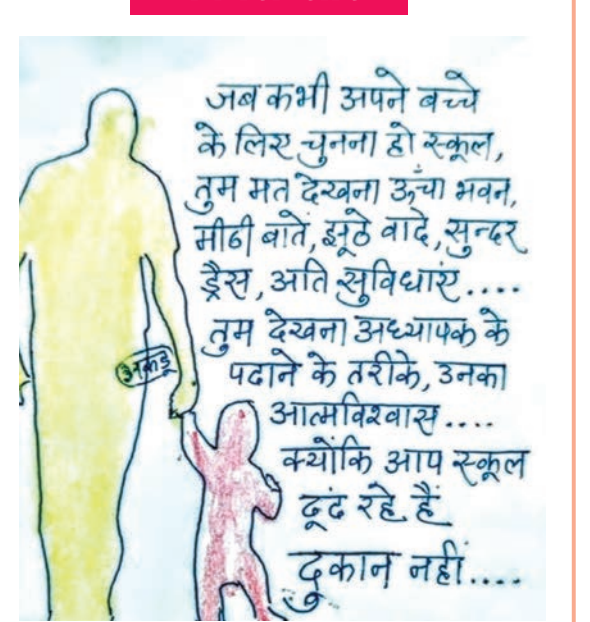 जब कभी अपने बच्चे
के लिए चुनना हो स्कूल,
तुम मत देखना ऊँचा भवन,
मीठी बातें, झूठे वादे, सुन्दर
ड्रैस, अति सुविधाएं ....
तुम देखना अध्यापक के
पढाने के तरीके, उनका
आत्मविश्वास ....
क्योंकि आप स्कूल
ढूढं रहे हैं
दुकान नहीं ....